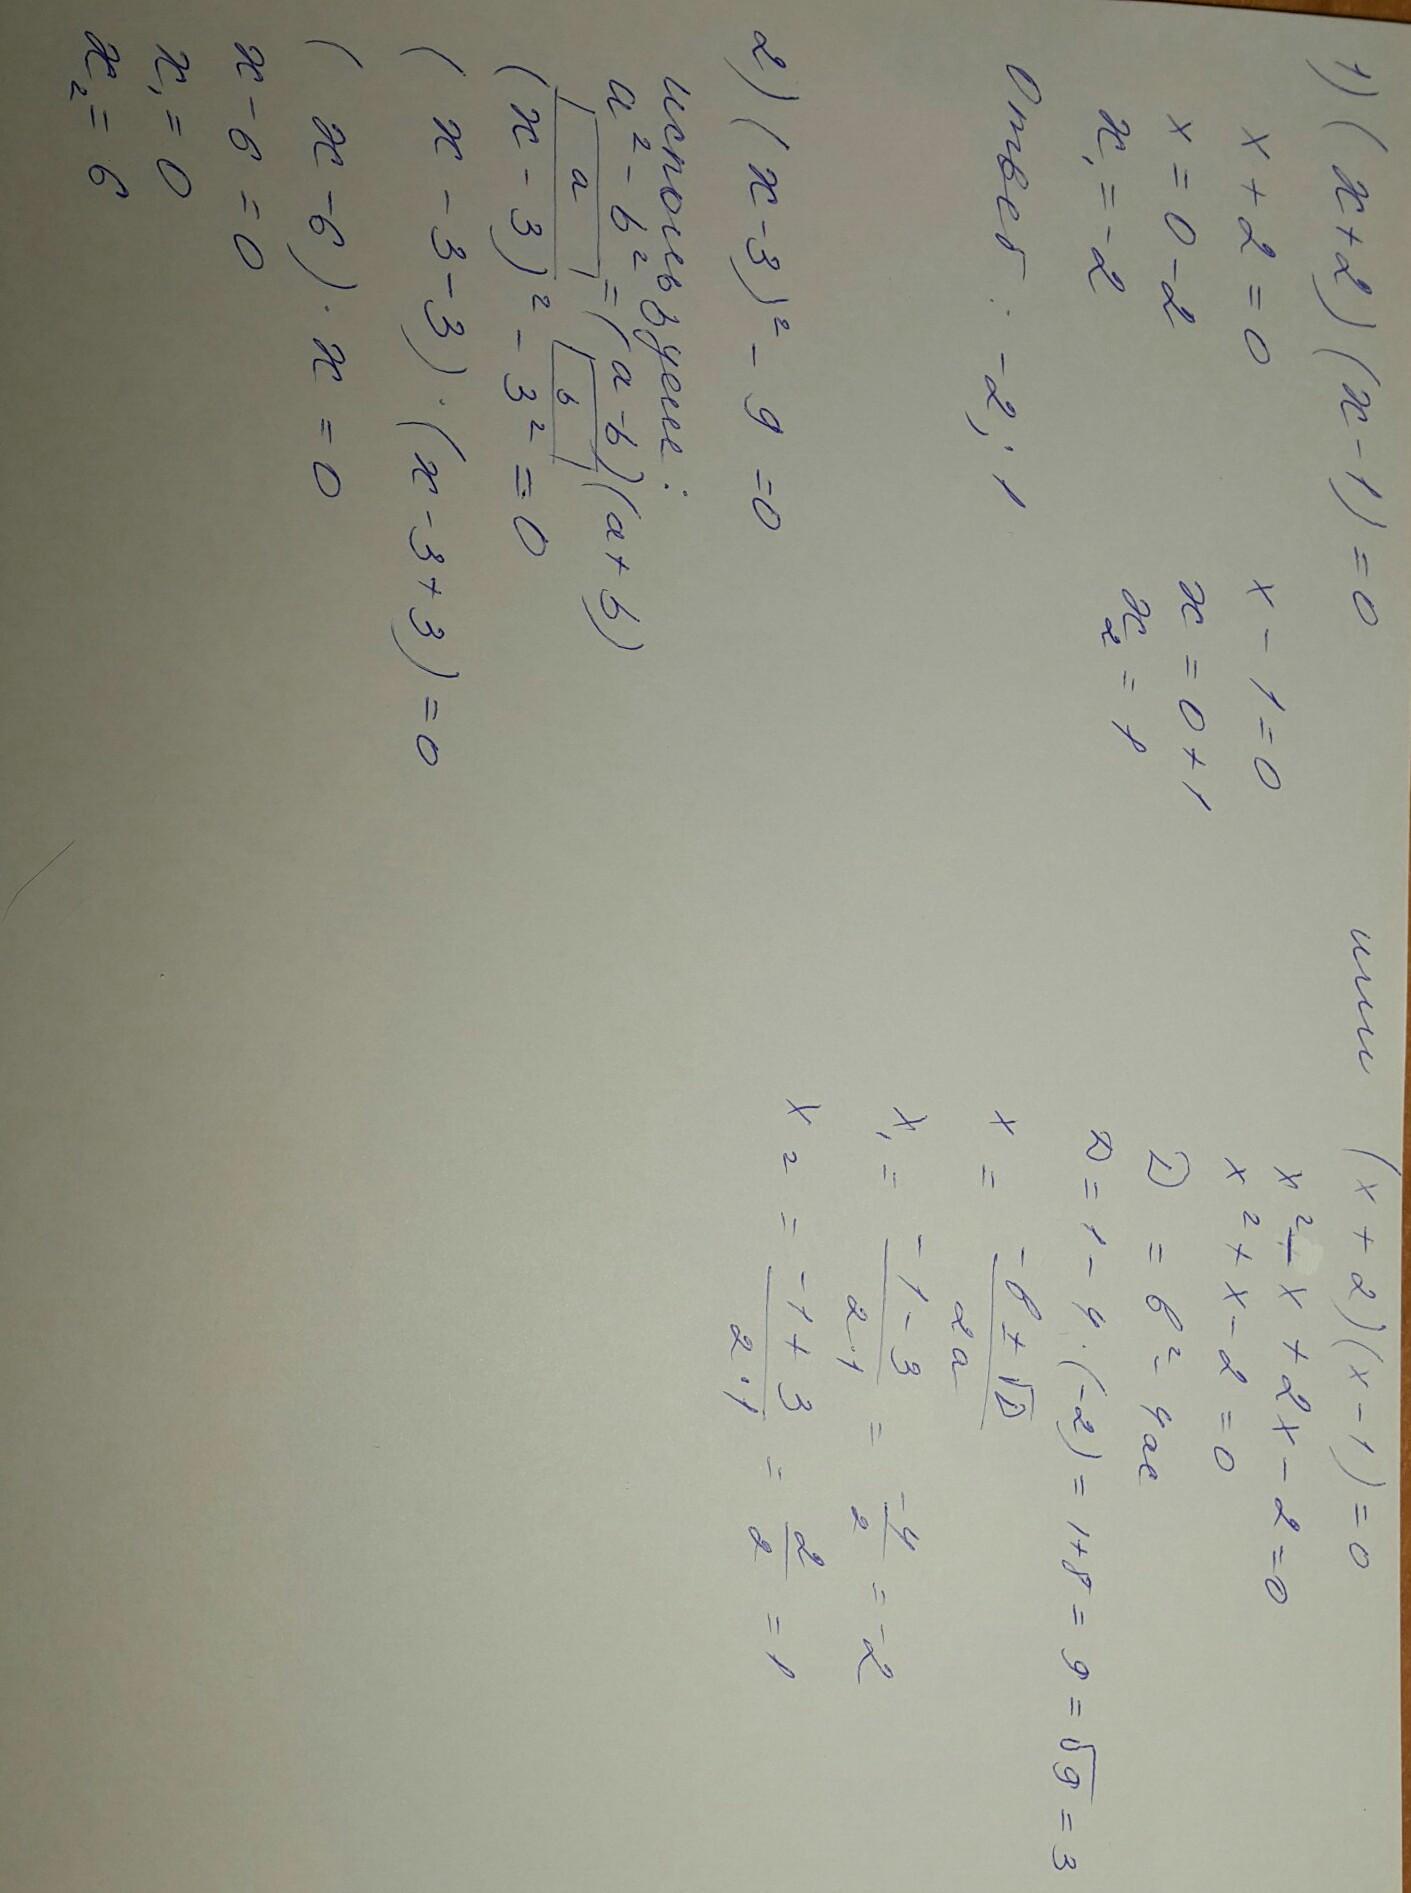 1) (x+2)(x-1)=0
x+2=0 x-1=0
x=0-2 x=0+1
x₁=-2 x₂=1
Ответ: -2; 1
или (x+2)(x-1)=0
x²-x+2x-2=0
x²+x-2=0
D=b²-4ac
D=1-4·(-2)=1+8=9=√9=3
x=(-b±√D)/2a
x₁=(-1-3)/(2·1)=-4/2=-2
x₂=(-1+3)/(2·1)=2/2=1
2) (x-3)²-9=0
используем:
a²-b²=(a-b)(a+b)
a b
(x-3)²-3²=0
(x-3-3)·(x-3+3)=0
(x-6)·x=0
x-6=0
x₁=0
x₂=6